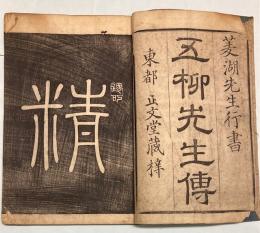 菱湖先生行書
五柳先生傳
東都 正文堂藏梓
精